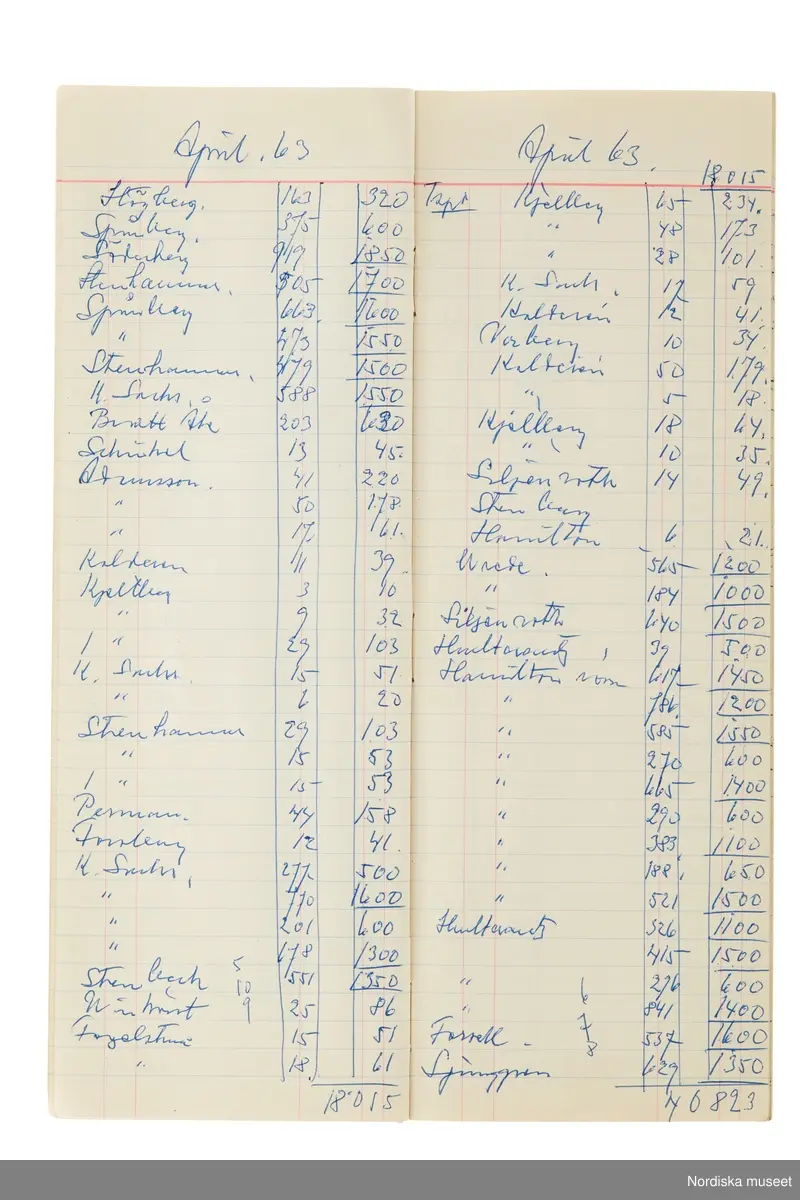 April. 63
Högberg. 163 320
Sprinberg. 375 600
Söderberg 919 1850
Stenhammar. 505 1700
663. 1600
" 473 1550
Stenhammar. 479 1500
K. Sachs. 588 1550
Bratt Åke 203 620
13 45.
41 220
" 50 178
" 17 61.
Kalderén 11 39.
Kjellberg 3 10
" 9 32
" 29 103
K. Sachs. 15 51.
" 6 20
Stenhammar 29 103
" 15 53
" 15 53
Persman. 44 158
Forsberg 12 41.
K. Sachs 277 500
" 770 1600
" 201 600
" 678 1300
Stenbeck 5 551 1350
10
9 25 86
15 51
" 18. 61
18015
April 63.
18015
Kjellberg 65 234.
" 48 173
" 28 101.
K. Sachs. 17 59
Kalderén 12 41.
10 34.
Kalderén 50 179.
" 5 18.
Kjellberg 18 64.
" 10 35.
Siljenroth 14 49.
Stenberg
Hamilton 6 21.
Wrede. 565 1200
" 184 1000
Siljenroth 640 1500
39 500
Hamilton 617 1450
" 786. 1200
" 585 1550
" 270 600
" 665 1400
" 290 600
" 383 1100
" 188. 650
" 521 1500
326 1100
415 1500
" 276 600
" 6 841 1400
7
8 537 1600
Ljunggren 629 1350
40823
Nordiska museet